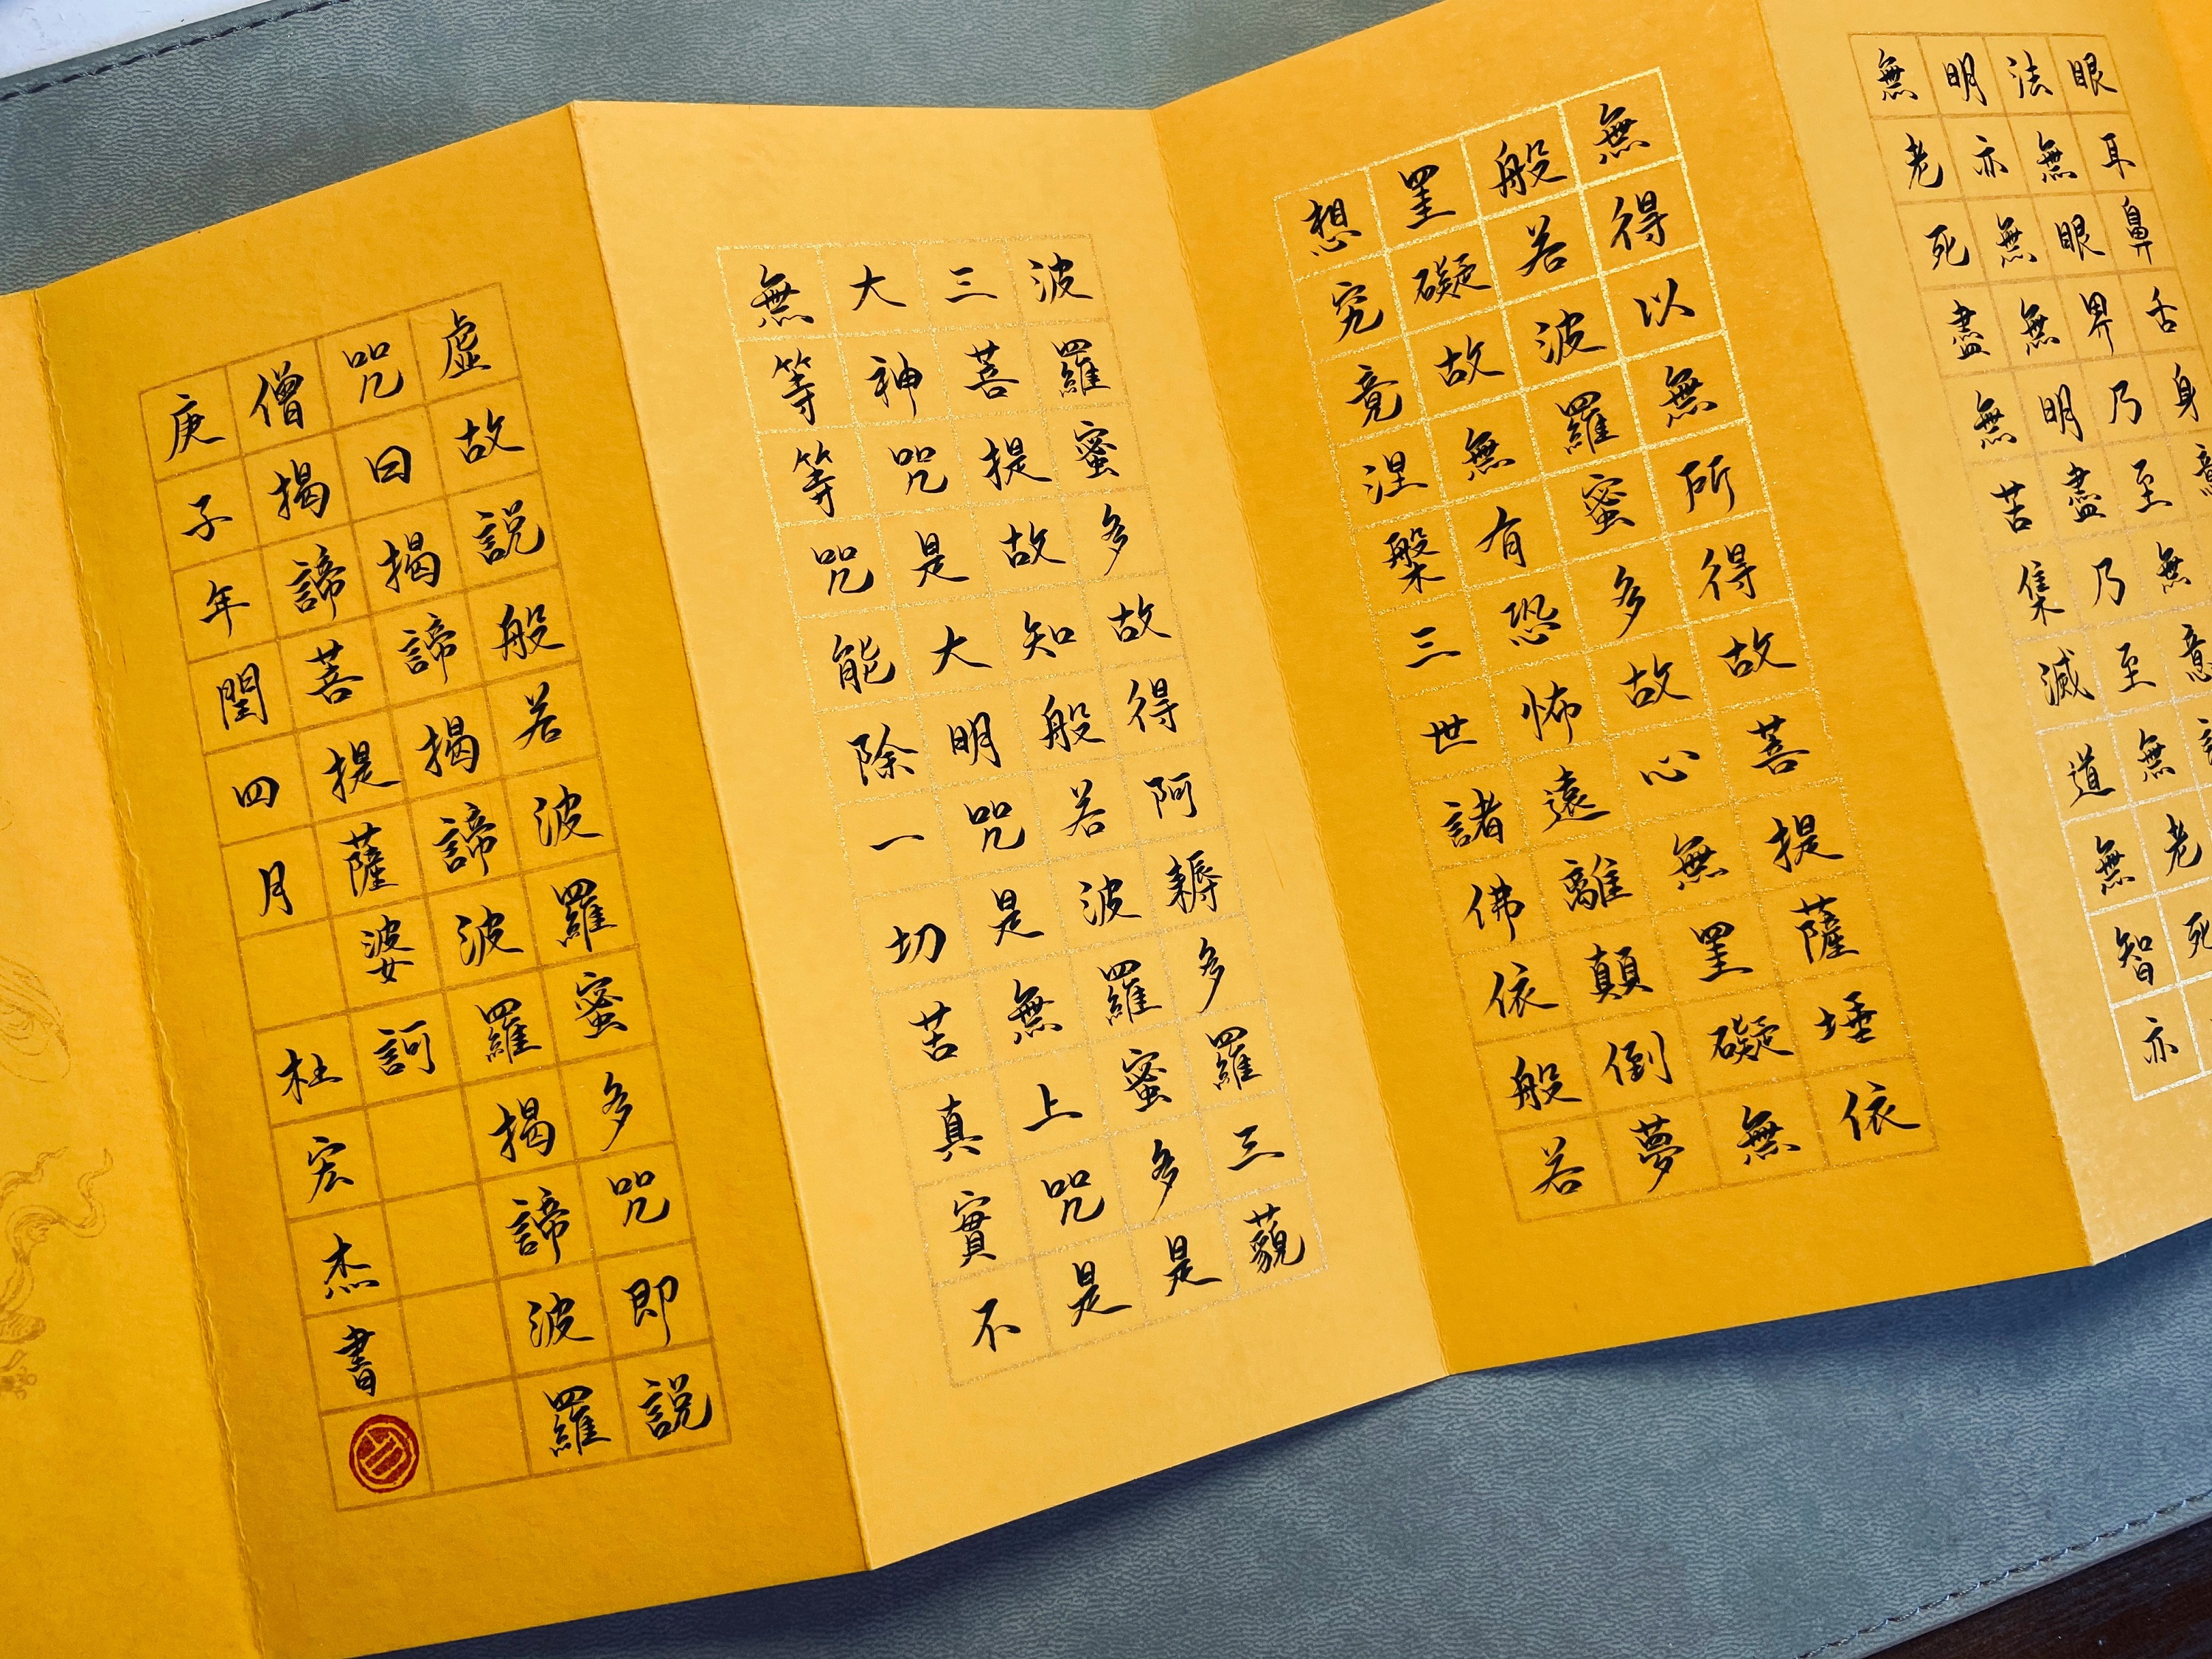 眼耳鼻舌身
法無眼界乃至無意
明亦無無明盡乃至無老死
無老死盡無苦集滅道無智亦
無得以無所得故菩提薩埵依
般若波羅蜜多故心無罣礙無
罣礙故無有恐怖遠離顛倒夢
想究竟涅槃三世諸佛依般若
波羅蜜多故得阿耨多羅三藐
三菩提故知般若波羅蜜多是
大神咒是大明咒是無上咒是
無等等咒能除一切苦真實不
虛故說般若波羅蜜多咒即說
咒曰揭諦揭諦波羅揭諦波羅
僧揭諦菩提薩婆訶
庚子年閏四月 杜宏杰書